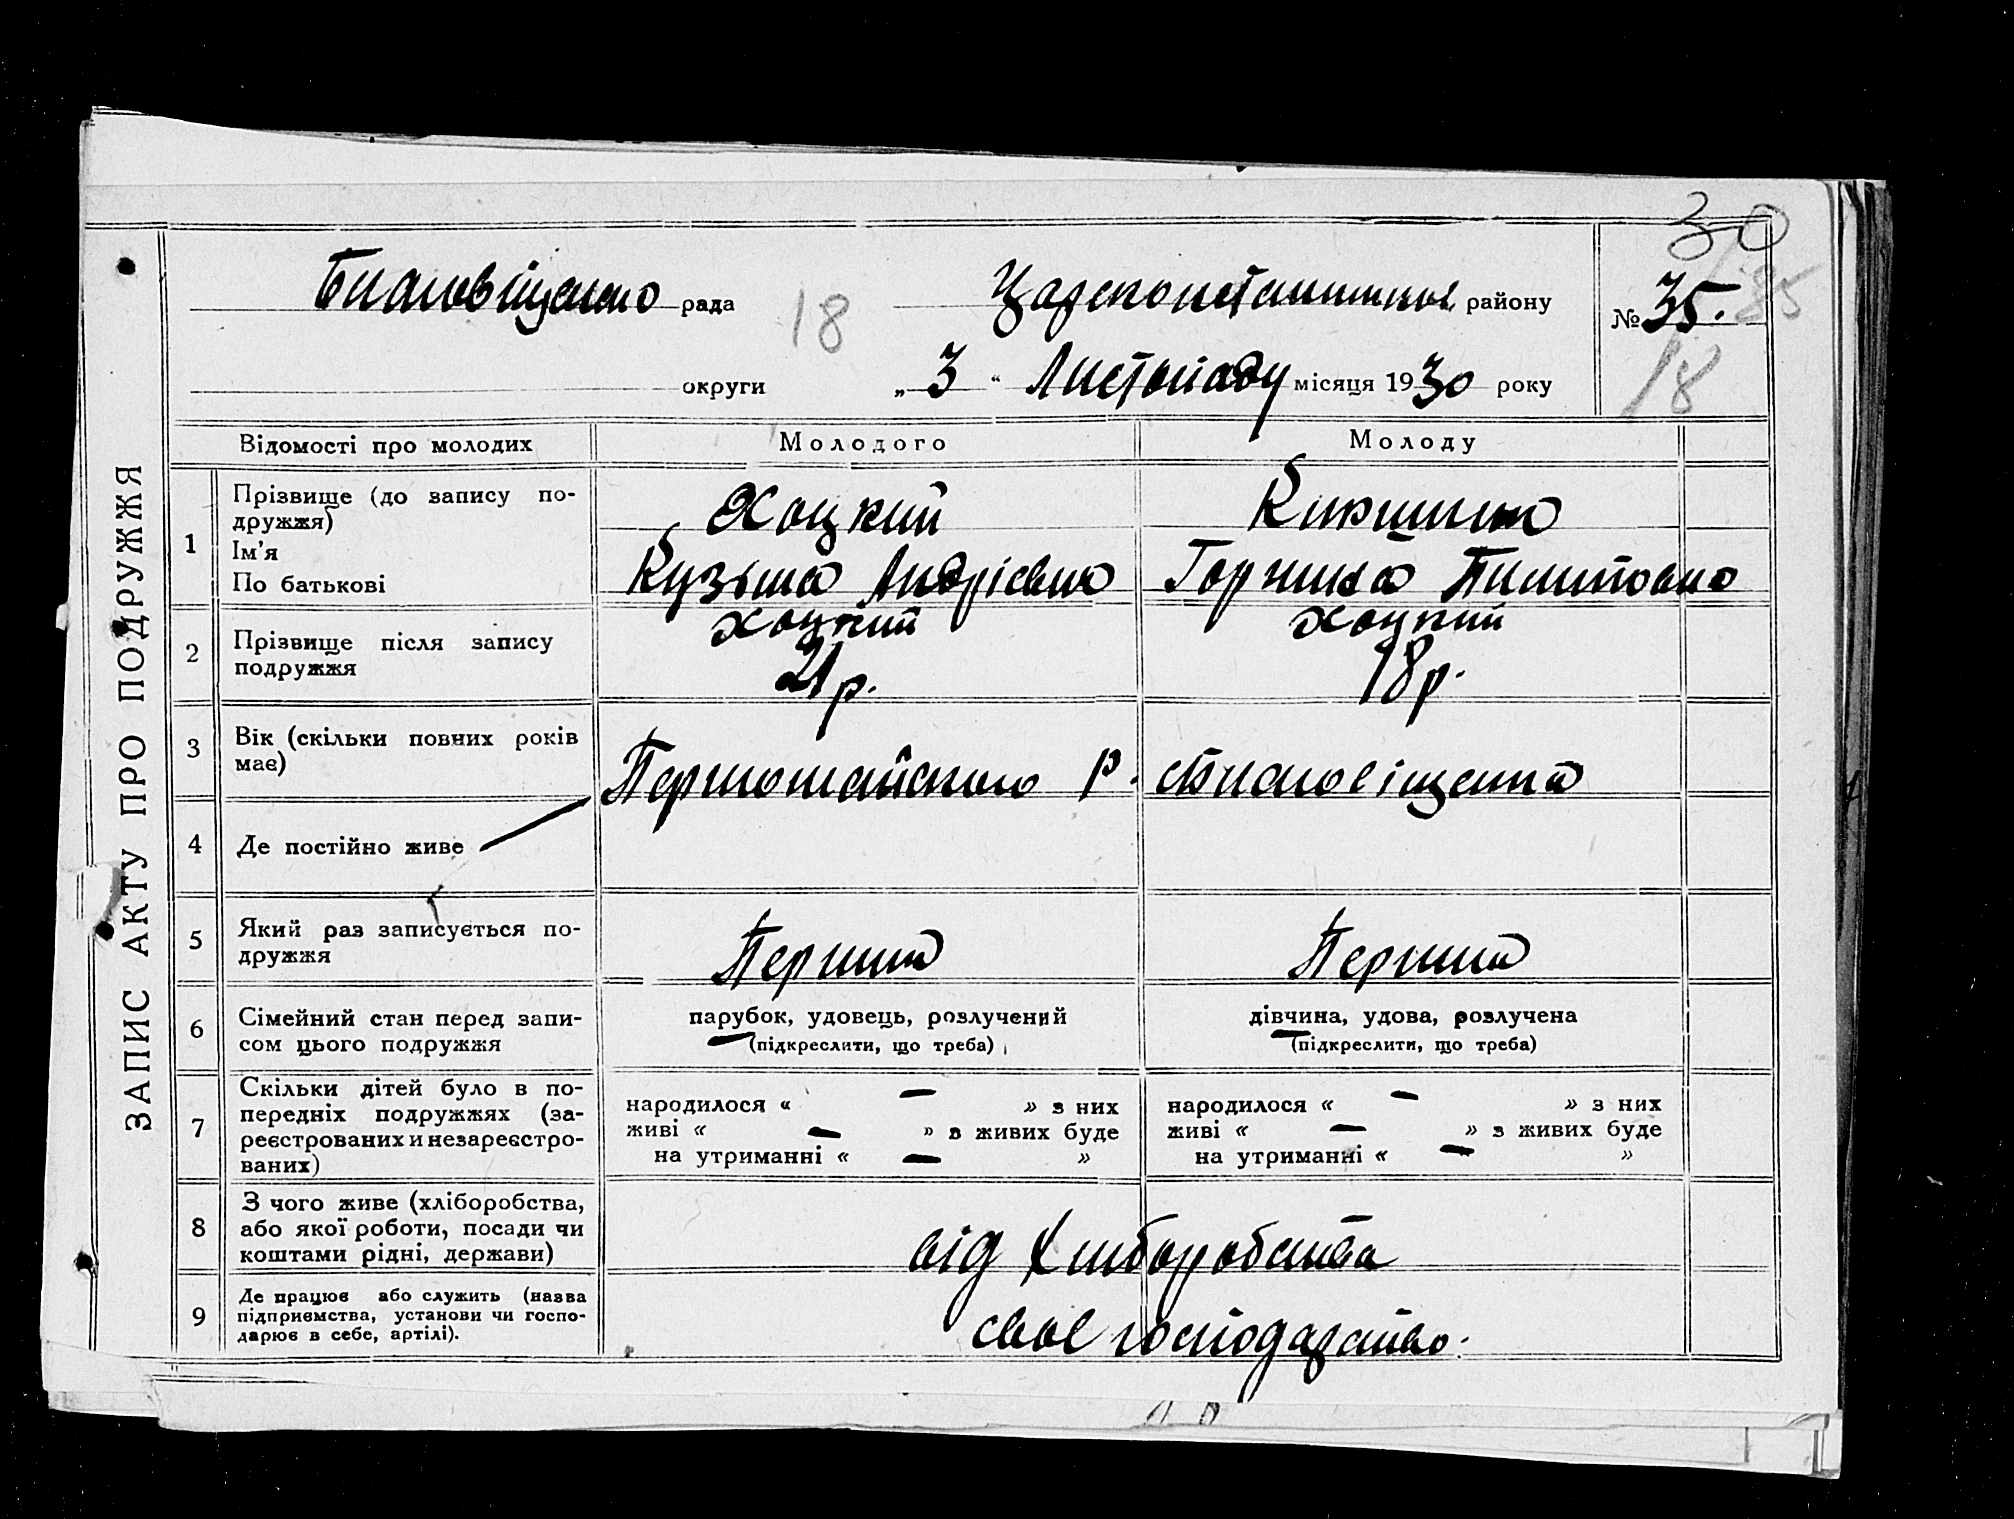 ЗАПИС АКТУ ПРО ПОДРУЖЖЯ
30
рада 18 району № 35. 85
округи „ 3 “ Листопаду місяця 1930 року 18
Відомості про молодих Молодого Молоду
1 Прізвище (до запису по-
дружжя) Хоцкий
Ім'я
По батькові Кузьма Андрієвич
2 Прізвище після запису
подружжя Хоцкий Хоцкий
21 р. 18 р.
3 Вік (скільки повних років
має)
Первомайского р. Благовіщенка
4 Де постійно живе
5 Який раз записується по-
дружжя Перший Перший
6 Сімейний стан перед запи-
сом цього подружжя
парубок, удовець, розлучений
(підкреслити, що треба)
дівчина, удова, розлучена
(підкреслити, що треба)
7 Скільки дітей було в по-
передніх подружжях (за-
реєстрованих и незареєстро-
ваних)
народилося « — » з них
живі « — » з живих буде
на утриманні « — »
народилося « — » з них
живі « — » з живих буде
на утриманні « — »
8 З чого живе (хліборобства,
або якої роботи, посади чи
коштами рідні, держави)
від Хліборобства
9 Де працює або служить (назва
підприємства, установи чи госпо-
дарює в себе, артілі).
своє господарство.